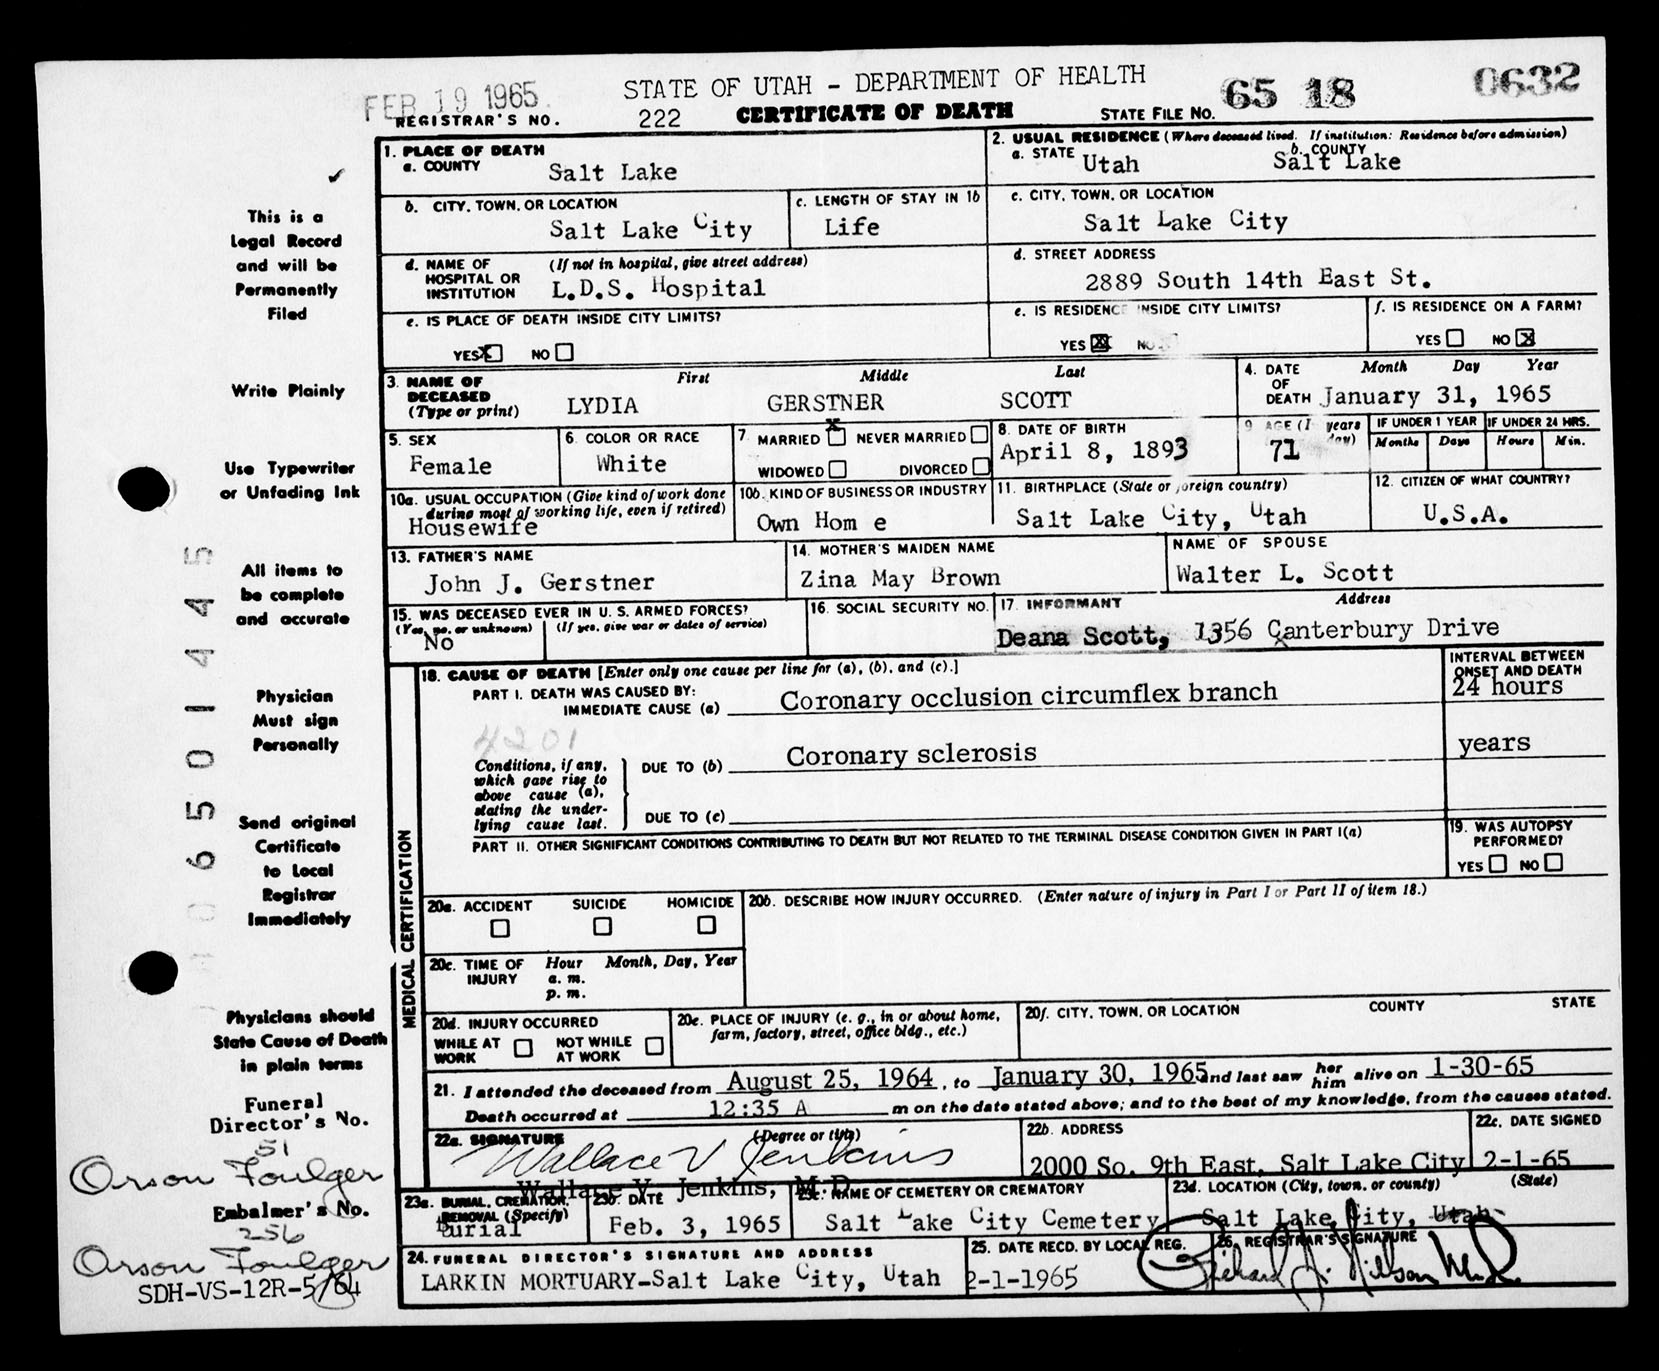 FEB 19 1965
STATE OF UTAH - DEPARTMENT OF HEALTH
65 18 0632
REGISTRAR'S NO. 222 CERTIFICATE OF DEATH STATE FILE NO.
1. PLACE OF DEATH
a. COUNTY Salt Lake
2. USUAL RESIDENCE (Where deceased lived. If institution: Residence before admission)
a. STATE Utah b. COUNTY Salt Lake
b. CITY, TOWN, OR LOCATION Salt Lake City
c. LENGTH OF STAY IN 1b Life
c. CITY, TOWN, OR LOCATION Salt Lake City
d. NAME OF HOSPITAL OR INSTITUTION (If not in hospital, give street address) L.D.S. Hospital
d. STREET ADDRESS 2889 South 14th East St.
e. IS PLACE OF DEATH INSIDE CITY LIMITS?
YES X NO
e. IS RESIDENCE INSIDE CITY LIMITS?
YES X NO
f. IS RESIDENCE ON A FARM?
YES NO X
3. NAME OF DECEASED (Type or print) First Middle Last
LYDIA GERSTNER SCOTT
4. DATE OF DEATH Month Day Year
January 31, 1965
5. SEX Female
6. COLOR OR RACE White
7. MARRIED X NEVER MARRIED
WIDOWED DIVORCED
8. DATE OF BIRTH April 8, 1893
9 AGE (I years day) 71
IF UNDER 1 YEAR Months Days
IF UNDER 24 HRS. Hours Min.
10a. USUAL OCCUPATION (Give kind of work done during most of working life, even if retired)
Housewife
10b. KIND OF BUSINESS OR INDUSTRY
Own Hom e
11. BIRTHPLACE (State or foreign country)
Salt Lake City, Utah
12. CITIZEN OF WHAT COUNTRY?
U.S.A.
13. FATHER'S NAME
John J. Gerstner
14. MOTHER'S MAIDEN NAME
Zina May Brown
NAME OF SPOUSE
Walter L. Scott
15. WAS DECEASED EVER IN U. S. ARMED FORCES?
(Yes, no, or unknown) (If yes, give war or dates of service)
No
16. SOCIAL SECURITY NO.
17. INFORMANT Address
Deana Scott, 1356 Canterbury Drive
MEDICAL CERTIFICATION
18. CAUSE OF DEATH [Enter only one cause per line for (a), (b), and (c).]
PART I. DEATH WAS CAUSED BY:
IMMEDIATE CAUSE (a) Coronary occlusion circumflex branch
INTERVAL BETWEEN ONSET AND DEATH
24 hours
4201
Conditions, if any, which gave rise to above cause (a), stating the underlying cause last.
DUE TO (b) Coronary sclerosis
years
DUE TO (c)
PART II. OTHER SIGNIFICANT CONDITIONS CONTRIBUTING TO DEATH BUT NOT RELATED TO THE TERMINAL DISEASE CONDITION GIVEN IN PART I(a)
19. WAS AUTOPSY PERFORMED?
YES NO
20a. ACCIDENT SUICIDE HOMICIDE
20b. DESCRIBE HOW INJURY OCCURRED. (Enter nature of injury in Part I or Part II of item 18.)
20c. TIME OF INJURY Hour Month, Day, Year
a. m.
p. m.
20d. INJURY OCCURRED
WHILE AT WORK NOT WHILE AT WORK
20e. PLACE OF INJURY (e. g., in or about home, farm, factory, street, office bldg., etc.)
20f. CITY, TOWN, OR LOCATION COUNTY STATE
21. I attended the deceased from August 25, 1964, to January 30, 1965 and last saw her him alive on 1-30-65
Death occurred at 12:35 A m on the date stated above; and to the best of my knowledge, from the causes stated.
22a. SIGNATURE (Degree or title)
Wallace V Jenkins
Wallace V. Jenkins, M.D.
22b. ADDRESS
2000 So. 9th East, Salt Lake City
22c. DATE SIGNED
2-1-65
23a. BURIAL, CREMATION, REMOVAL (Specify)
Burial
23b. DATE
Feb. 3, 1965
23c. NAME OF CEMETERY OR CREMATORY
Salt Lake City Cemetery
23d. LOCATION (City, town, or county) (State)
Salt Lake City, Utah
24. FUNERAL DIRECTOR'S SIGNATURE AND ADDRESS
LARKIN MORTUARY-Salt Lake City, Utah
25. DATE RECD. BY LOCAL REG.
2-1-1965
26. REGISTRAR'S SIGNATURE
This is a
Legal Record
and will be
Permanently
Filed
Write Plainly
Use Typewriter
or Unfading Ink
All items to
be complete
and accurate
Physician
Must sign
Personally
Send original
Certificate
to Local
Registrar
Immediately
Physicians should
State Cause of Death
in plain terms
Funeral
Director's No.
51
Orson Foulger
Embalmer's No.
256
Orson Foulger
SDH-VS-12R-5/64
06501445